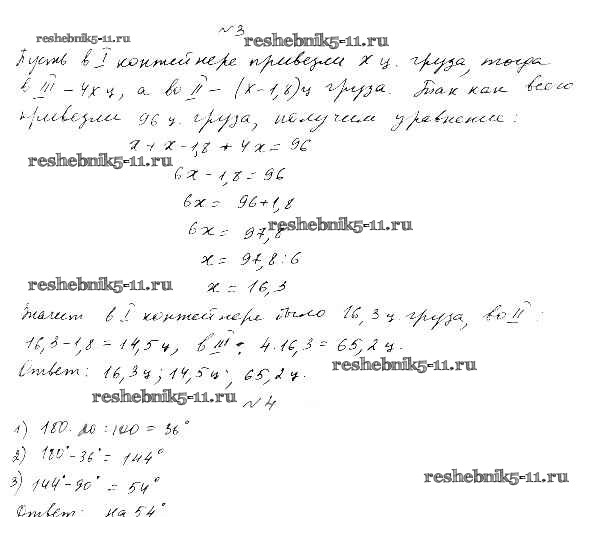 №3
reshebnik5-11.ru reshebnik5-11.ru
Пусть в I контейнере привезли x ц. груза, тогда
в III – 4x ц, а во II – (x-1,8) ц груза. Так как всего
привезли 96 ц. груза, получим уравнение:
x + x - 1,8 + 4x = 96
reshebnik5-11.ru
6x - 1,8 = 96
6x = 96+1,8
6x = 97,8
reshebnik5-11.ru
x = 97,8 : 6
reshebnik5-11.ru
x = 16,3
Значит в I контейнере было 16,3 ц. груза, во II :
16,3-1,8 = 14,5 ц, в III : 4·16,3 = 65,2 ц.
reshebnik5-11.ru
Ответ: 16,3 ц; 14,5 ц; 65,2 ц.
reshebnik5-11.ru
№4
1) 180·20:100 = 36°
2) 180°-36° = 144°
3) 144°-90° = 54°
reshebnik5-11.ru
Ответ: на 54°